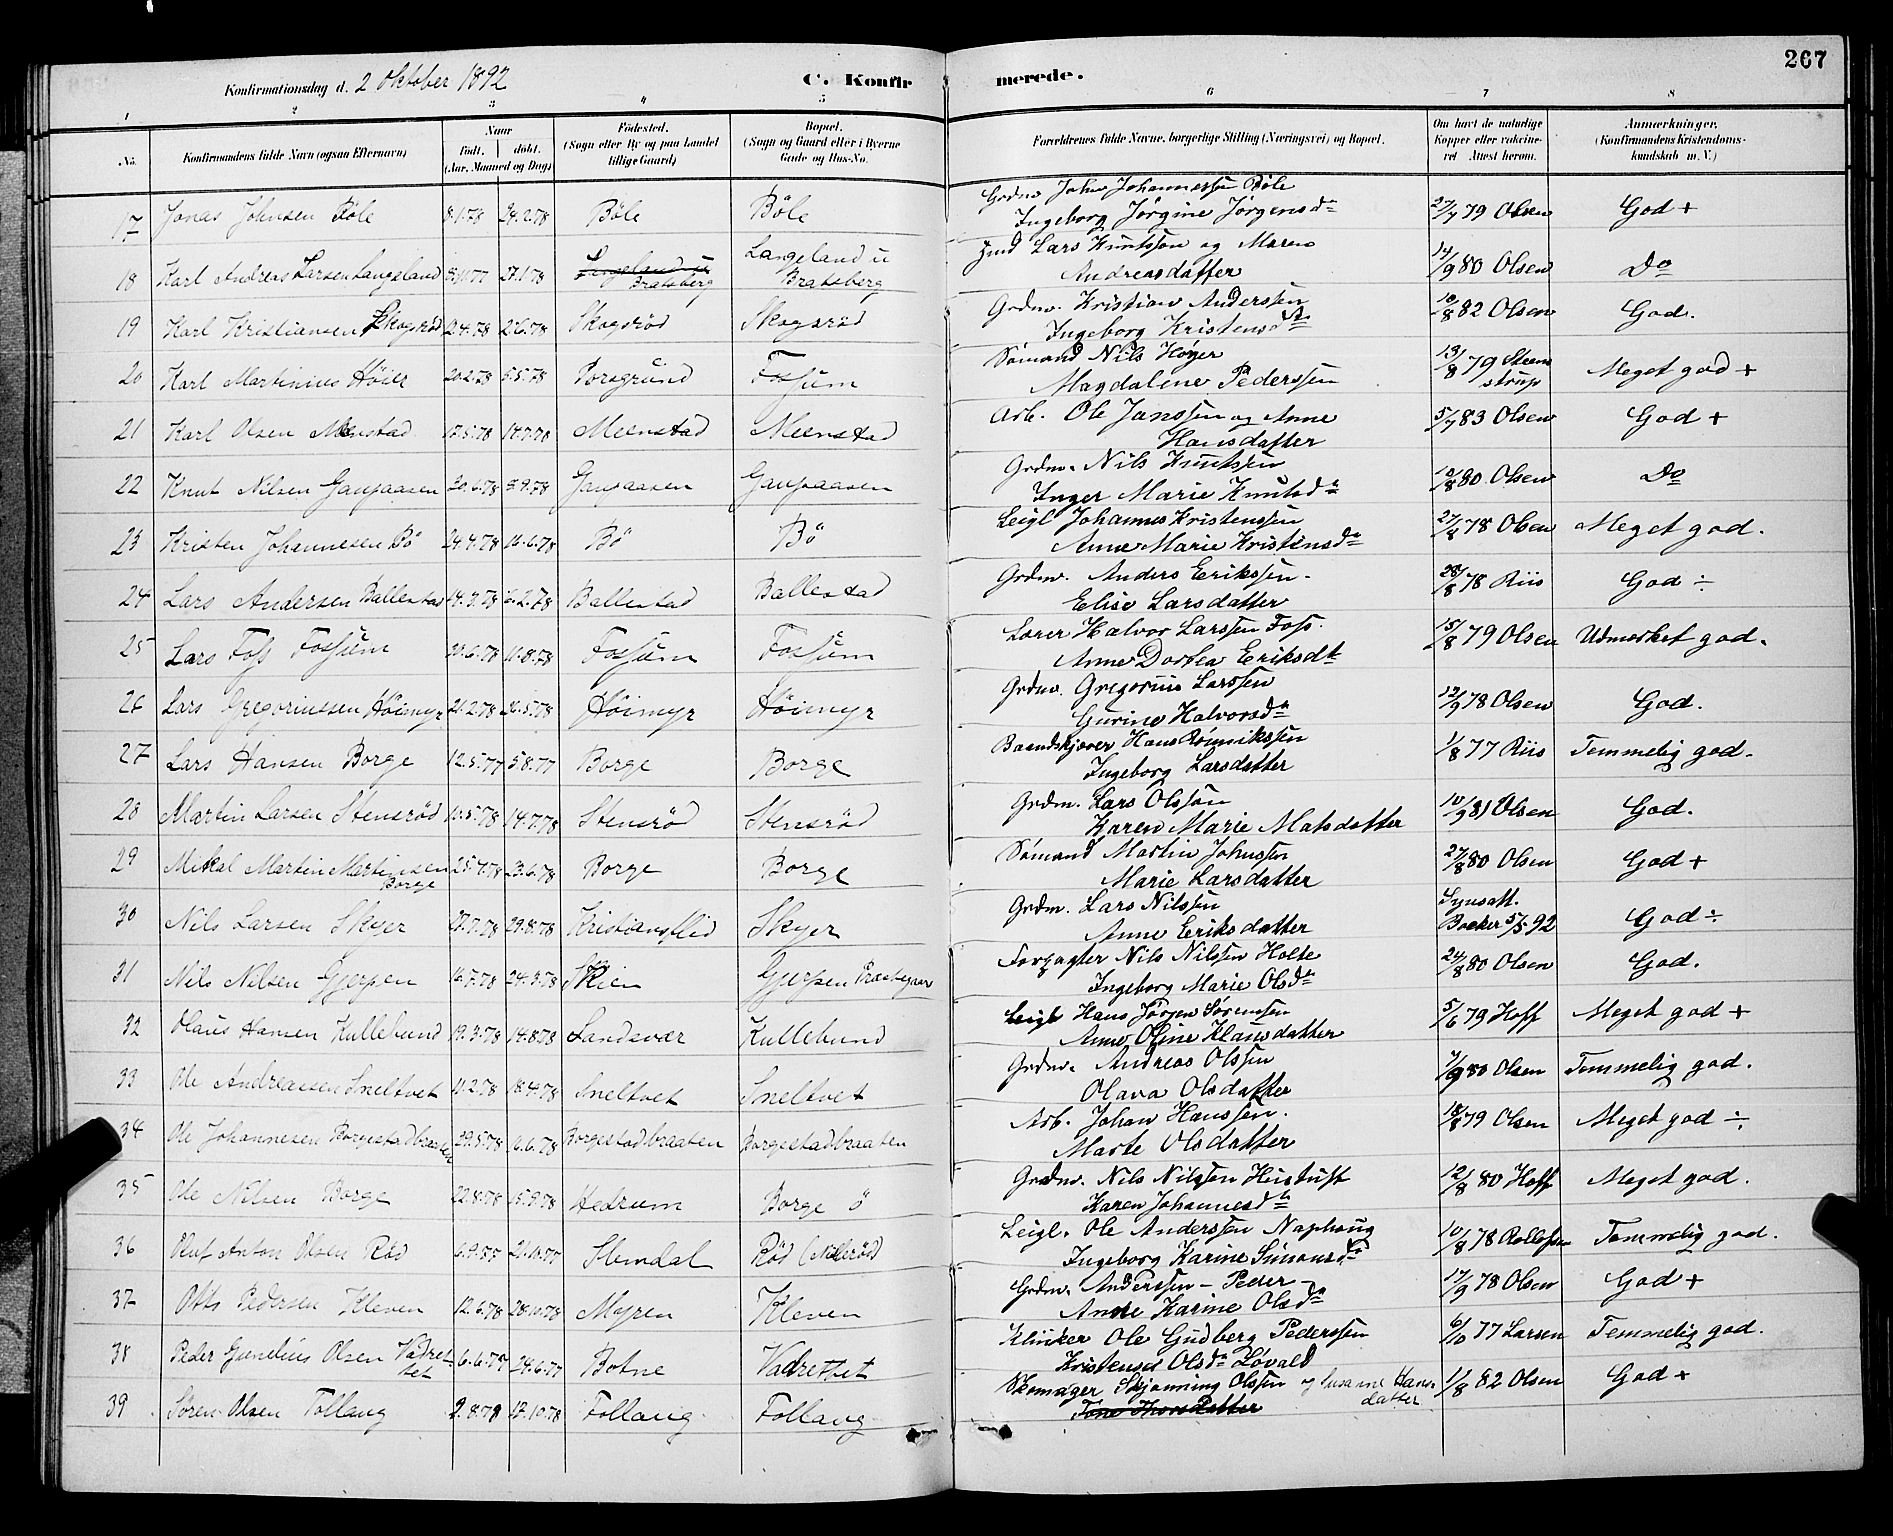 267
Konfirmationsdag d. 2 Oktober 1892 C. Konfir merede.
1 2 3 4 5 6 7 8
No. Konfirmandens fulde Navn (ogsaa Efternavn) Naar Født. døbt. (Aar, Maaned og Dag) Fødested. (Sogn eller By og paa Landet tillige Gaard) Bopæl. (Sogn og Gaard eller i Byerne Gade og Hus-No. Forældrenes fulde Navne, borgerlige Stilling (Næringsvei) og Bopæl. Om havt de naturlige Kopper eller vakcineret Attest herom. Anmærkninger. (Konfirmandens Kristendomskundskab m. V.)
17 Jonas Johnsen Böle 8.1.78 24.2.78 Böle Böle Grdm. John Johannessen Böle
Ingeborg Jørgine Jørgensd. 27/7 79 Olsen God +
18 Karl Andreas Larsen Langeland 27.1.78 Langeland u Bratsberg Langeland u Bratsberg Lars Knutssøn og Maren
Andreasdatter 14/9 80 Olsen Do
19 Karl Kristiansen Skogsröd 2.4.78 2.6.78 Skogsröd Skogsröd Grdm. Kristian Anderssen
Ingeborg Kristensd. 10/8 82 Olsen God.
20 Karl Martinius Höier 20.2.78 5.5.78 Porsgrund Fossum Sømand Nils Høyer
Magdalene Pederssen 13/8 79 Steenstrup Meget god +
21 Karl Olsen Menstad 17.5.78 14.7.78 Meenstad Meenstad Arb. Ole Janssen og Anne
Hansdatter 5/7 83 Olsen God +
22 Knut Nilsen Gaupaasen 20.6.78 8.9.78 Gaupaasen Gaupaasen Grdm. Nils Knutsen
Inger Marie Knutsd. 10/8 80 Olsen Do
23 Kristen Johannesen Bö 24.4.78 16.6.78 Bö Bö Leigl Johannes Kristenssen
Anne Marie Kristensd. 27/8 78 Olsen Meget god.
24 Lars Andersen Ballestad 14.3.78 Ballestad Ballestad Grdm. Anders Erikssen.
Elise Larsdatter 28/8 78 Riis God ÷
25 Lars Foss Fossum 11.8.78 Fossum Fossum Lærer Halvor Larssen Foss.
Anne Dortea Eriksdt. 15/8 79 Olsen Udmerket god.
26 Lars Gregoriussen Höimyr 21.2.78 26.5.78 Höimyr Höimyr Grdm. Gregorius Larssen
Gurine Halvorsd. 12/9 78 Olsen God.
27 Lars Hansen Borge 12.5.77 5.8.77 Borge Borge Baandskjærer Hans Rönnikssen
Ingeborg Larsdatter 1/8 77 Riis Temmelig god.
28 Martin Larsen Stensröd 10.5.78 14.7.78 Stensröd Stensröd Grdm. Lars Olssøn
Karen Marie Matsdatter 10/9 81 Olsen God.
29 Mikal Martin Martinsen Borge 23.6.78 Borge Borge Sømand Martin Johnssen
Marie Larsdatter 27/8 80 Olsen God +
30 Nils Larsen Skyer 27.7.78 29.8.78 Skyer Grdm. Lars Nilssen
Anne Eriksdatter Synsatt. Backer 5/5 92 God ÷
31 Nils Nilsen Gjerpen 16.7.78 24.3.78 Skien Gjerpen Præstegaar Forpagter Nils Nilssen Holte
Ingeborg Marie Olsd. 24/8 80 Olsen God.
32 Olaus Hansen Kullebund 19.3.78 14.8.78 Sandsvær Kullebund Leigl Hans Jörgen Sörenssen
Anne Oline Klausdatter 5/6 79 Hoff Meget god +
33 Ole Andreassen Sneltvet 11.2.78 18.4.78 Sneltvet Sneltvet Grdm. Andreas Olssen
Olava Olsdatter 7/9 80 Olsen Temmelig god.
34 Ole Johannesen Borgestadbraaten 29.5.78 6.6.78 Borgestadbraaten Borgestadbraaten Arb. Johan Hanssen.
Marte Olsdatter 18/8 79 Olsen Meget god ÷
35 Ole Nilsen Borge 22.8.78 15.9.78 Hedrum Borge ö Grdm. Nils Nilssen
Karen Johannesd. 12/8 80 Hoff Meget god.
36 Oluf Anton Olsen Röd 6.9.77 21.10.77 Slemdal Röd Leigl. Ole Anderssen Naphaug
Ingeborg Karine Simonsd. 10/8 78 Temmelig god.
37 Otto Pedersen Kleven 12.6.78 28.10.78 Myren Kleven Grdm. Anderssen – Peder –
Anne Karine Olsd. 17/9 78 Olsen God +
38 Peder Gunelius Olsen Vadrettet 6.6.77 24.6.77 Botne Vadrettet Klinker Ole Gudberg Pederssen
Kristense Olsd. Løvald 6/10 77 Larsen Temmelig god.
39 Sören Olsen Follaug 2.8.78 17.10.78 Follaug Follaug Skomager Skjönning Olssen og Susanne Hansdatter
Tone Thorsdatter 1/8 82 Olsen God +